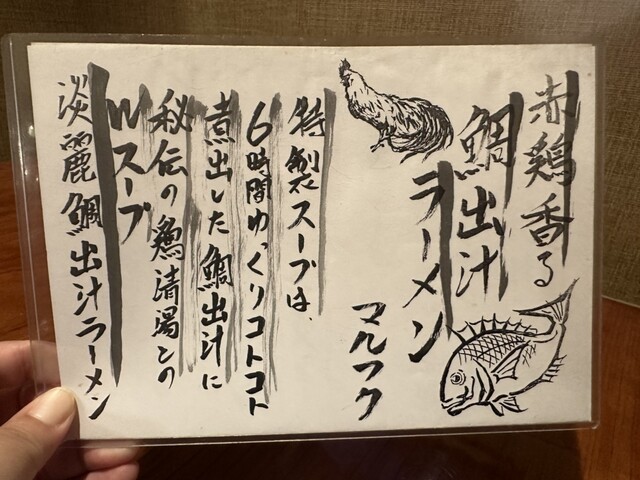 赤鶏香る
鯛出汁
ラーメン
マルフク
特製スープは、
6時間ゆっくりコトコト
煮出した鯛出汁に
秘伝の鶏清湯との
Wスープ
淡麗鯛出汁ラーメン